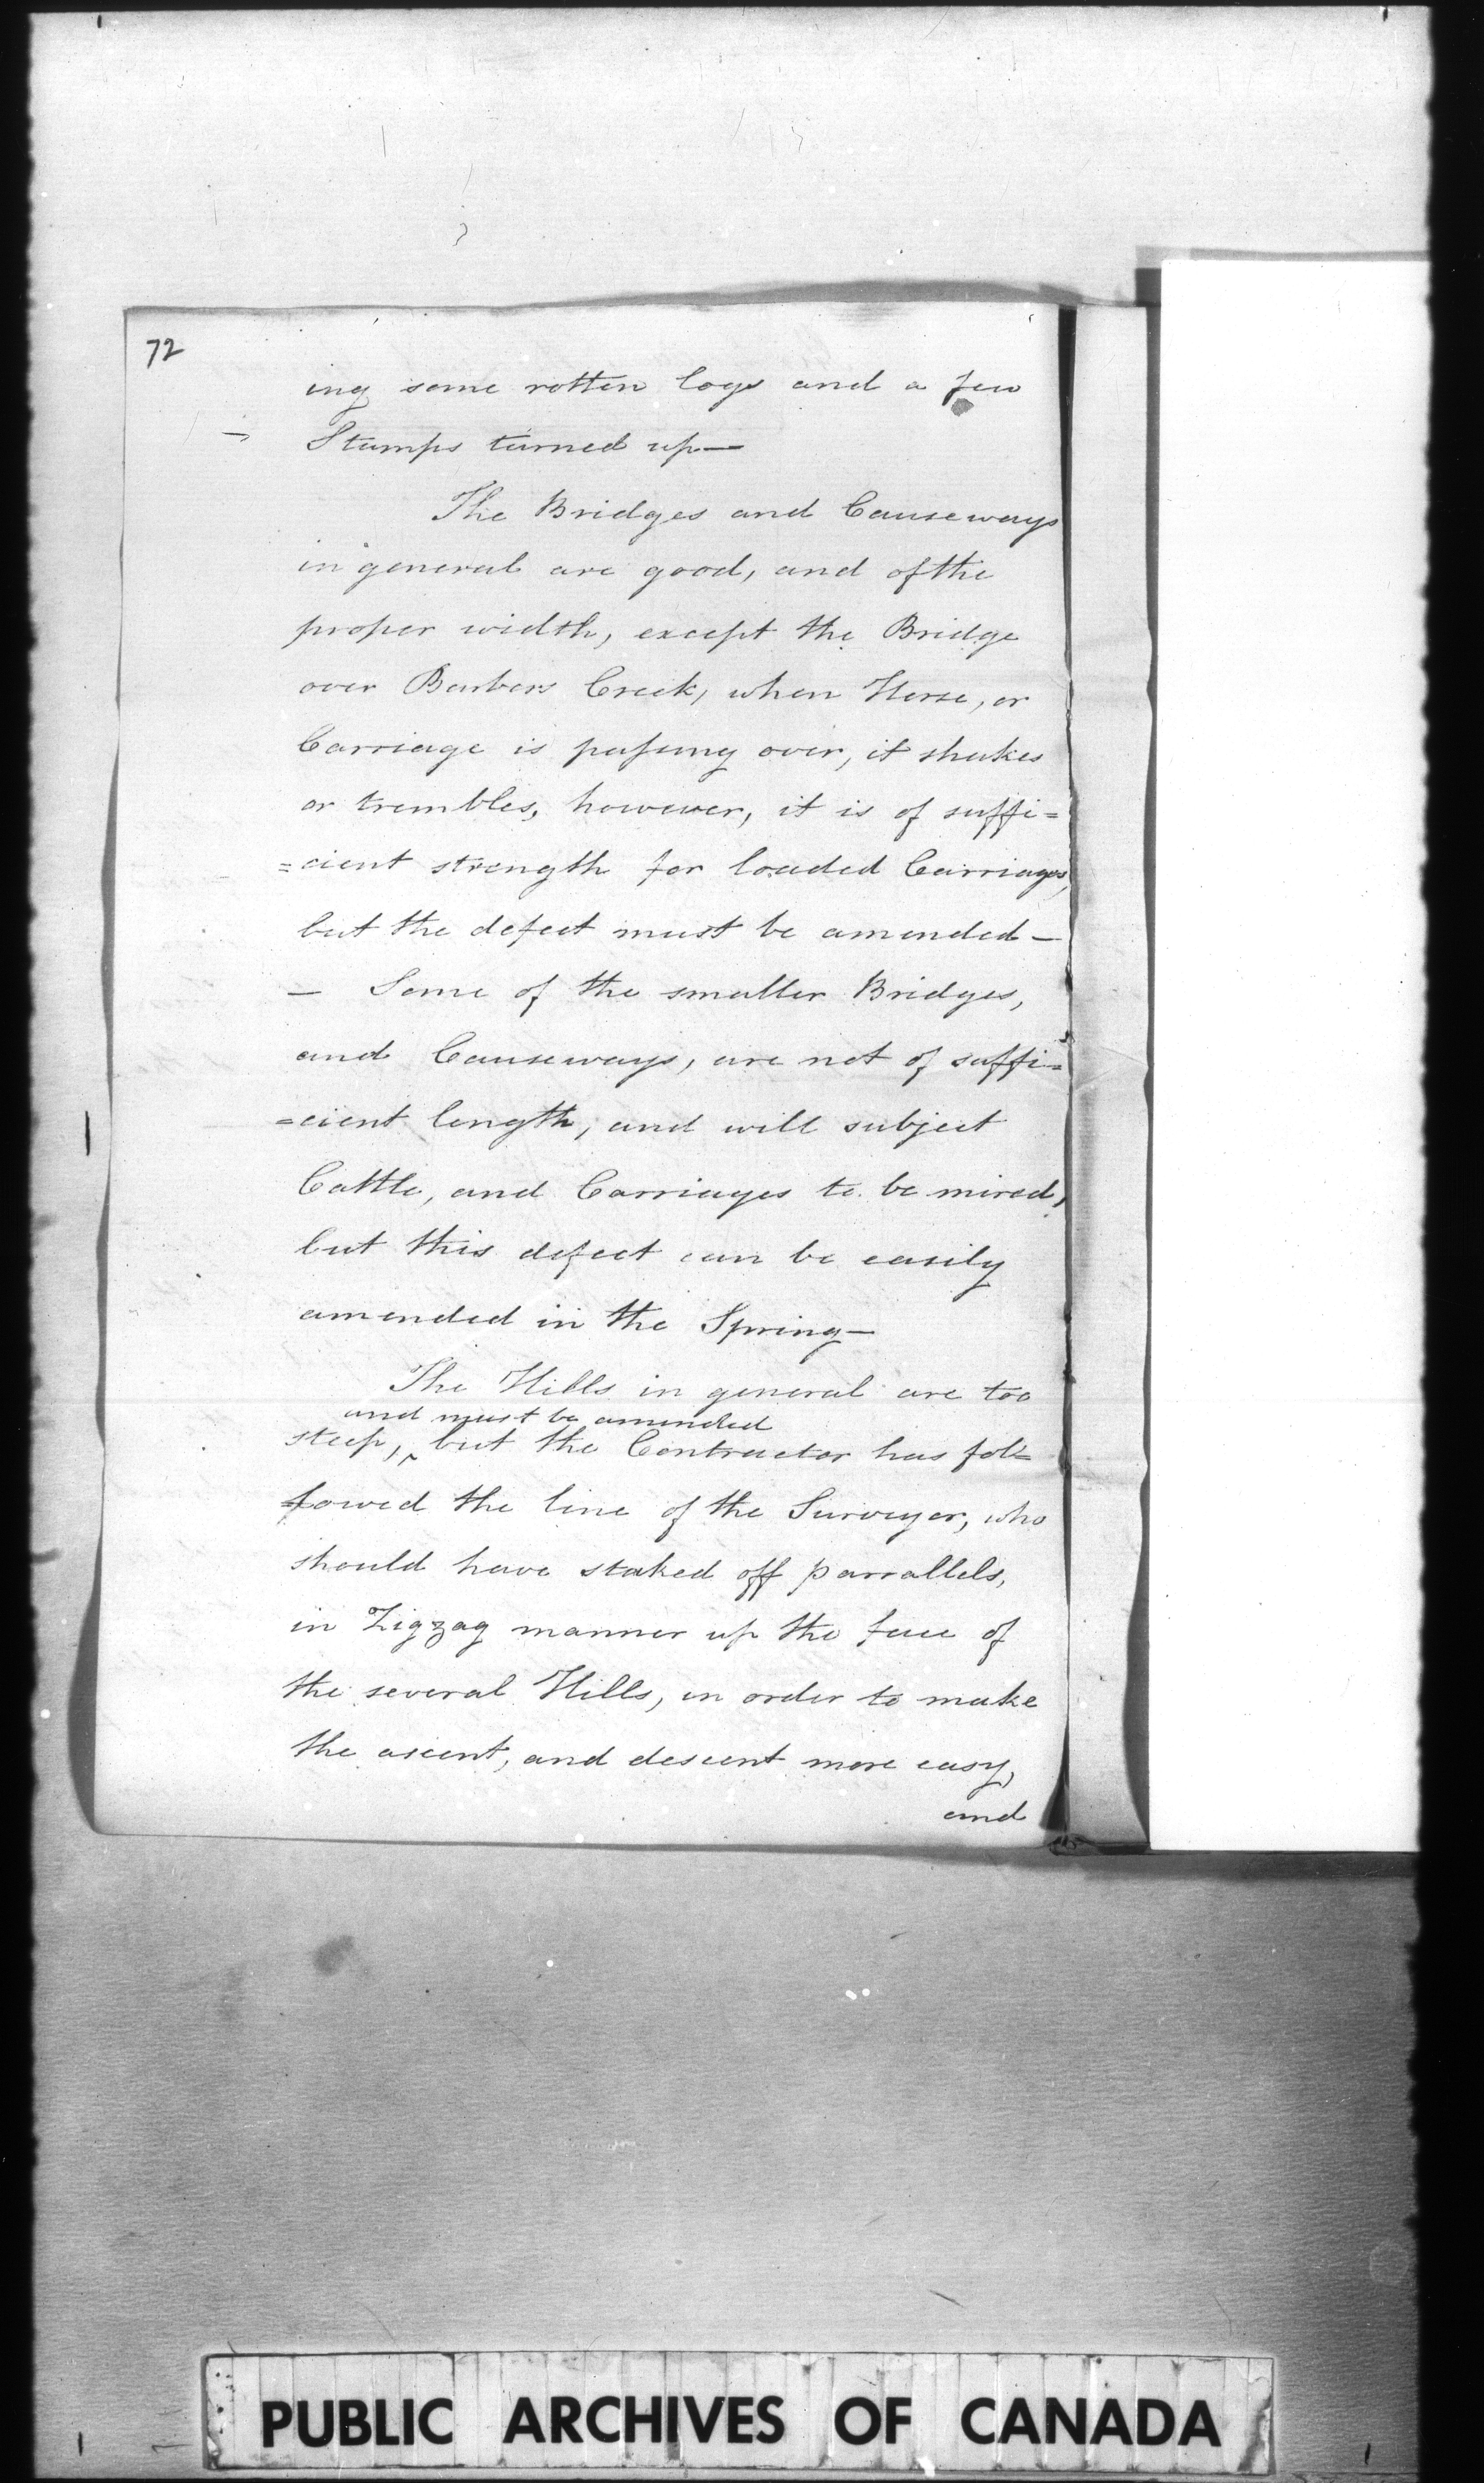 72
ing some rotten logs and a few
Stumps turned up—
The Bridges and Causeways
in general are good, and of the
proper width, except the Bridge
over Barbers Creek, when Horse, or
Carriage is passing over, it shakes
or trembles, however, it is of suffi=
=cient strength for loaded Carriages,
but the defect must be amended—
— Some of the smaller Bridges,
and Causeways, are not of suffi=
=cient length, and will subject
Cattle, and Carriages to be mired,
but this defect can be easily
amended in the Spring—
The Hills in general are too
and must be amended
steep, ‸ but the Contractor has fol=
=lowed the line of the Surveyor, who
should have staked off parrallels,
in Zigzag manner up the face of
the several Hills, in order to make
the ascent, and descent more easy,
and
PUBLIC ARCHIVES OF CANADA